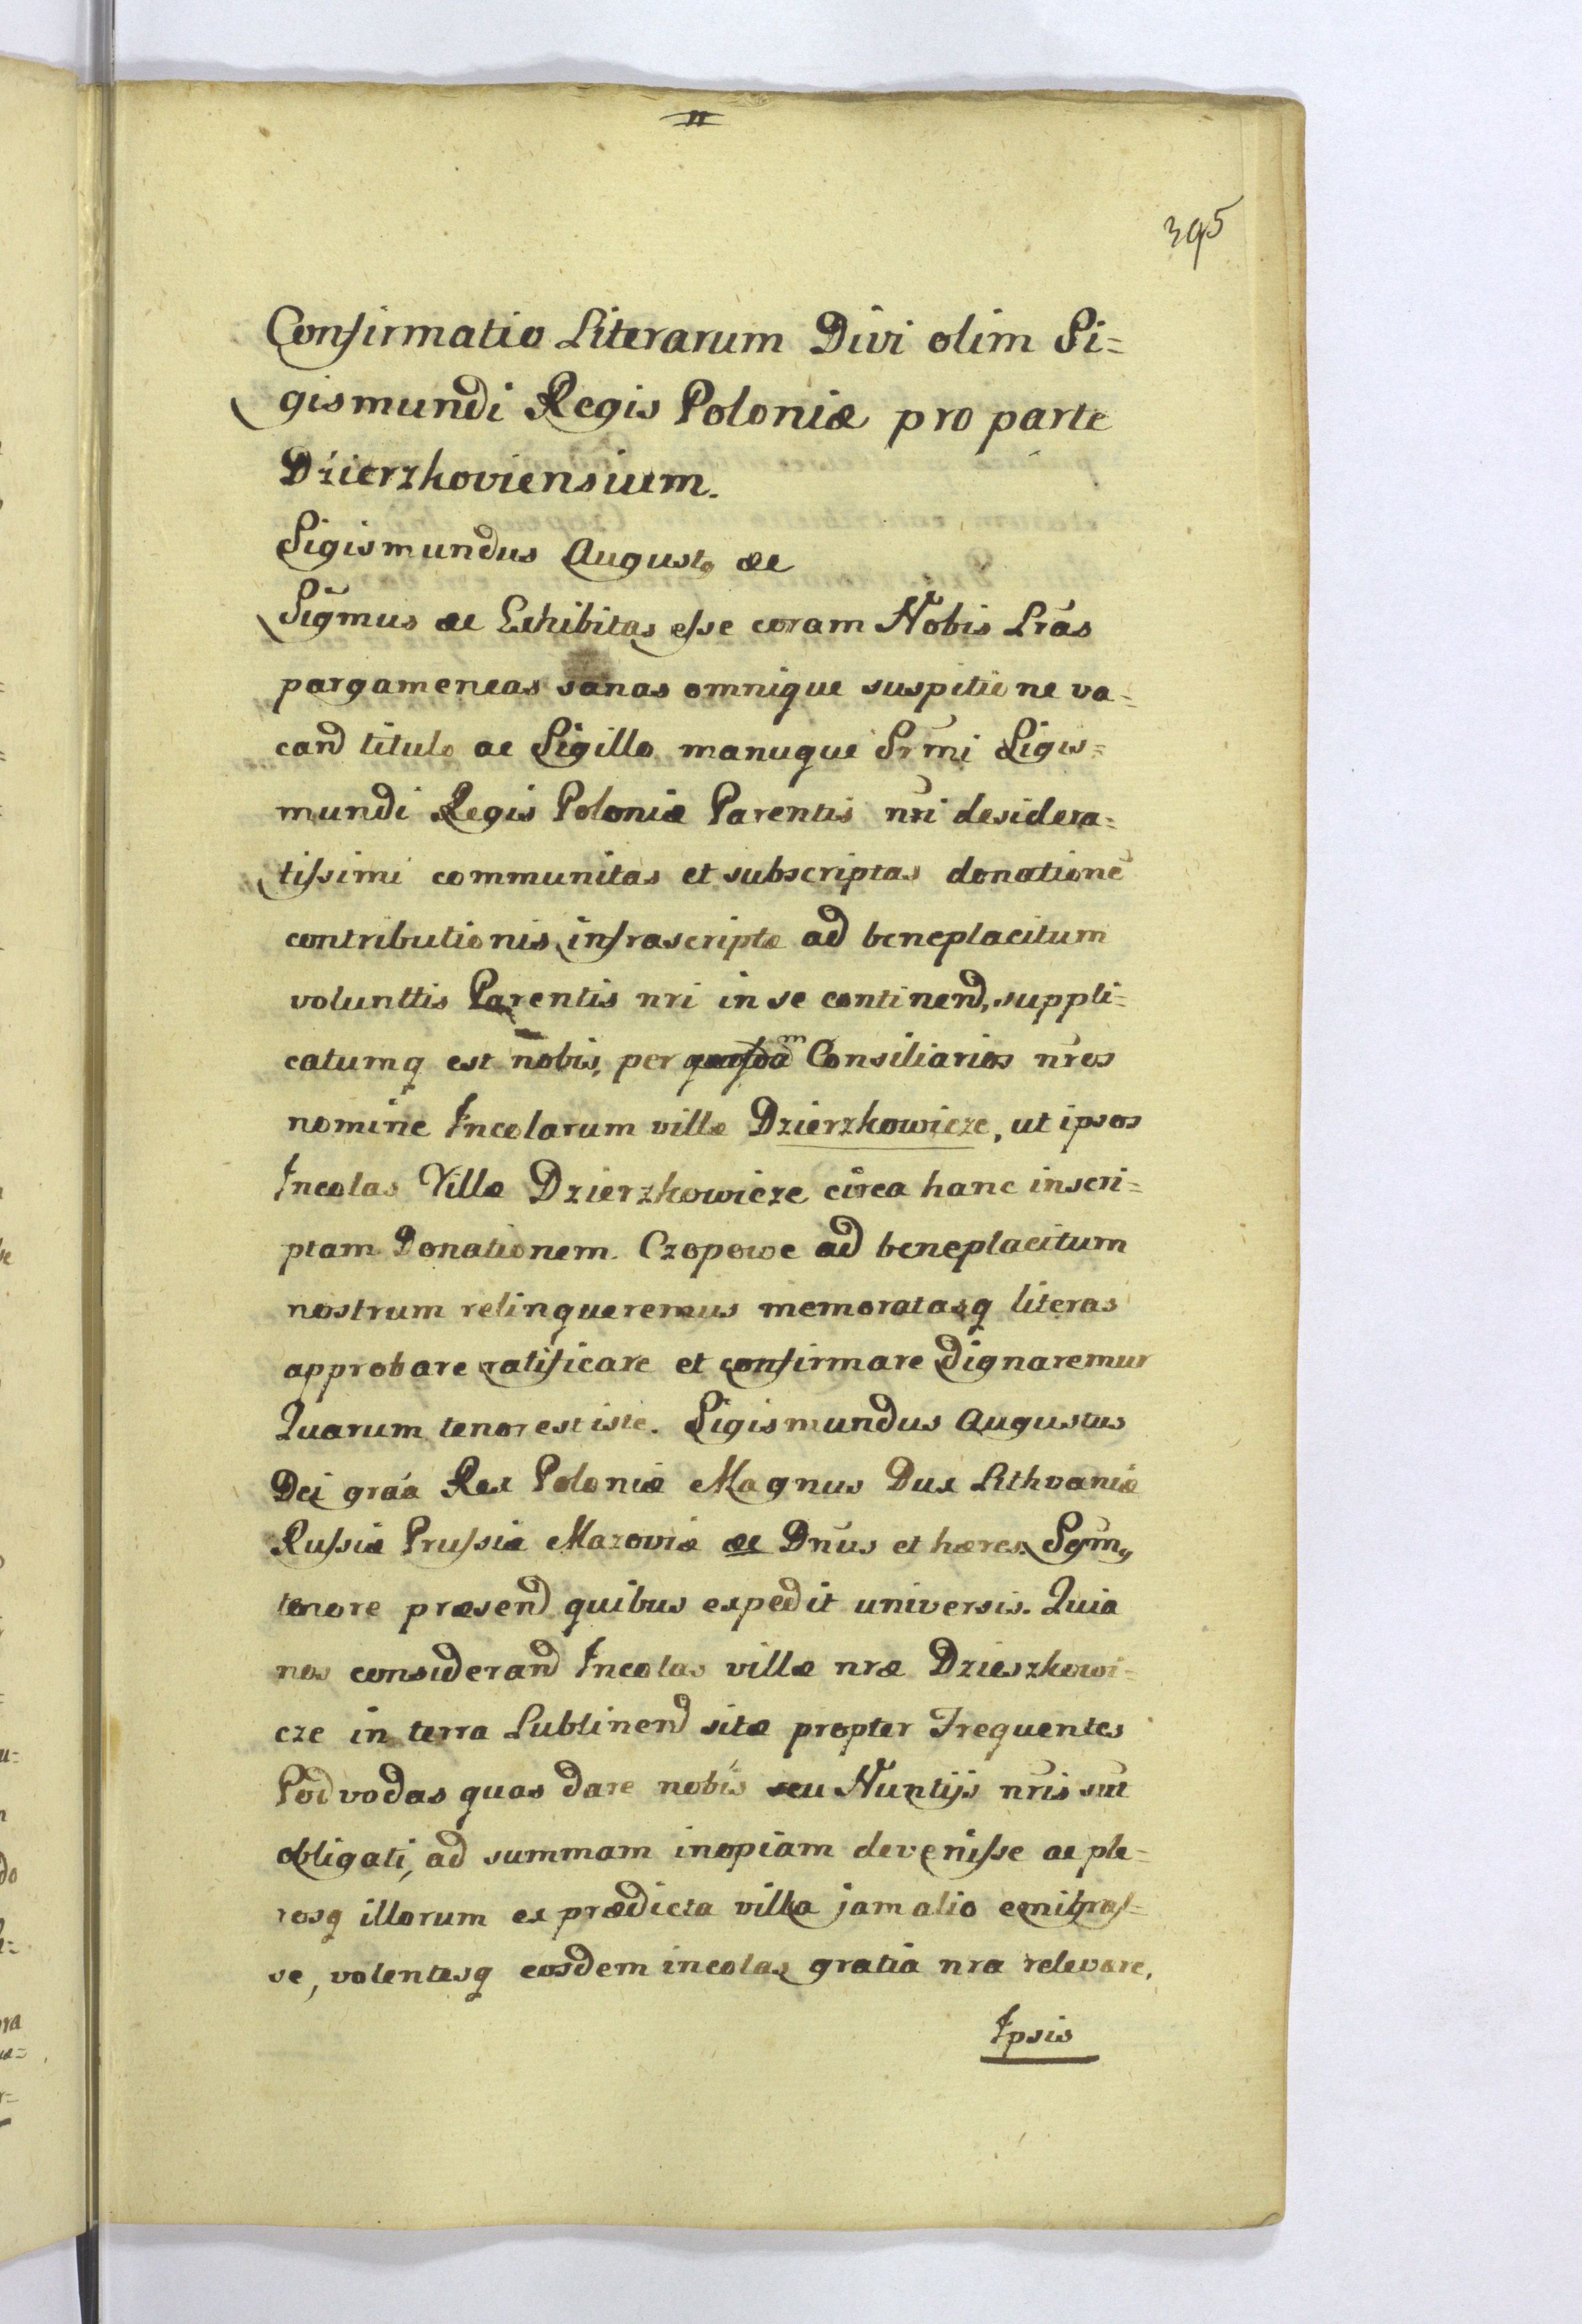 395
Confirmatio Literarum Divi olim Si=
gismundi Regis Poloniæ pro parte
Dźierzkoviensium.
Sigismundus August9 &c
Sig̃mus &c Exhibitas esse coram Nobis Lr̃as
pargameneas sanas omnique suspitione va=
cand titulo ac Sigillo manuque Sr̃mi Sigis=
mundi Regis Poloniæ Parentis nr̃i desidera=
tissimi communitas et subscriptas donationẽ
contributionis infrascriptæ ad beneplacitum
volunttis Parentis nri in se continend, suppli=
catumq est nobis, per Consiliarios nr̃os
nomine Incolarum villæ Dzierzkowicze, ut ipsos
Incolas Villæ Dzierzkowicze circa hanc inscri=
ptam Donationem Czopowe ad beneplacitum
nostrum relinqueremus memoratasq literas
approbare ratificare et confirmare dignaremur
Quarum tenor est iste. Sigismundus Augustus
Dei grãa Rex Poloniæ Magnus Dux Lithvaniæ
Russiæ Prussiæ Mazoviæ &c Dnũs et hæres. Sgm̃9
tenore præsend quibus expedit universis. Quia
nos considerand Incolas villæ nræ Dzieszkowi=
cze in terra Lublinend sitæ propter Frequentes
Podvodas quas dare nobis seu Nuntijs nr̃is sũt
obligati, ad summam inopiam devenisse ac ple=
rosq illorum ex prædicta villa jam alio
se, volentesq eosdem incolas gratia nra relevare,
Ipsis